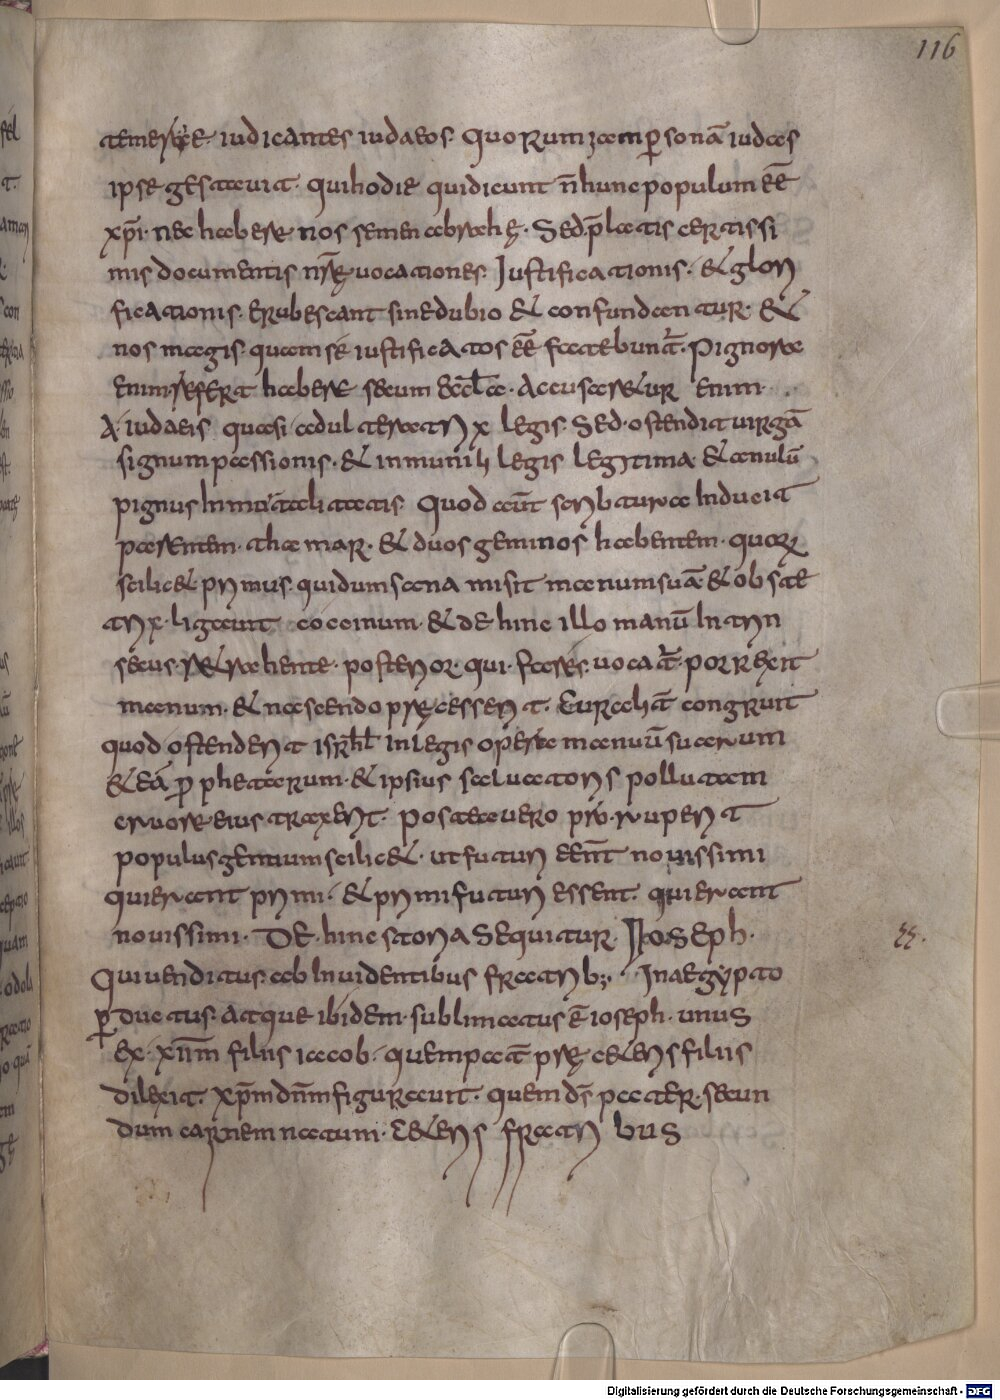 116
temere · iudicantes iudaeos · quorum &am personā iudas
ipse gestauit · quihodie quidicunt n̄huncpopulum eē
xp̄i · nec habere nos semen abrahę · Sedp̄latis certissi
mis documentis nr̄ę uocationes · Iustificationis · & glori
ficationis · erubescant sinedubio & confundantur · &
nos magis quamsē iustificatos eē fatebunt̄ · pignora
enim refert habere secum ęccl̄a · Accusaretur enim
A iudaeis quasi adulteratrix legis · Sed ostendit uirgā
signum passionis · & inmunili legis legitima & anulū
pignus Inmortalitatis · Quod etiā scribtura Inducit
parentem · thamar · & duos geminos habentem · quorꝝ
scilic& primus · quidumscena misit manumsuā & obste
trix · ligauit cocinum · & de hinc illo manū In trin
secus · retrahente · posterior · qui · fares · uocat̄ · porrexit
manum · & nascendo pręcesserit · Cur etiā congruit
quod ostenderit isrl̄ In legis opere manuū suarum
& eā prophetarum · & ipsius saluatoris pollutam
cruore eius traxerit · posteauero prorruperit
populusgentiumscilic& · utfuturi eent̄ nouissimi
quierant primi · & primifuturi essent · quierant
nouissimi · De · hinc storia sequitur · Ioseph ·
Quiuenditus · ab Inuidentibus fratrib; · Inaegypto
perductus · atque ibidem · sublimatus ē ioseph · unus
ex · xiim filiis iacob · quempat̄ pręceteris filiis
dilexit · xp̄m dn̄mfigurauit · quem ds̄ pater · secun
dum carnem natum · ceteris fratri bus